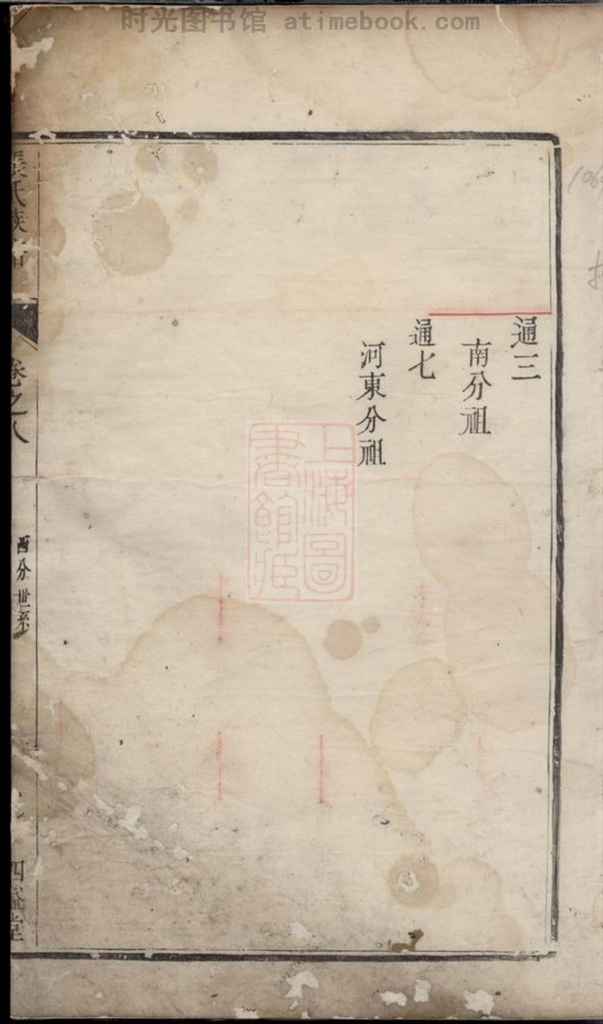 时光图书馆 atimebook.com
通三
南分祖
通七
河東分祖
上海圖
書館藏
氏族
卷之八
西分世系
四益堂